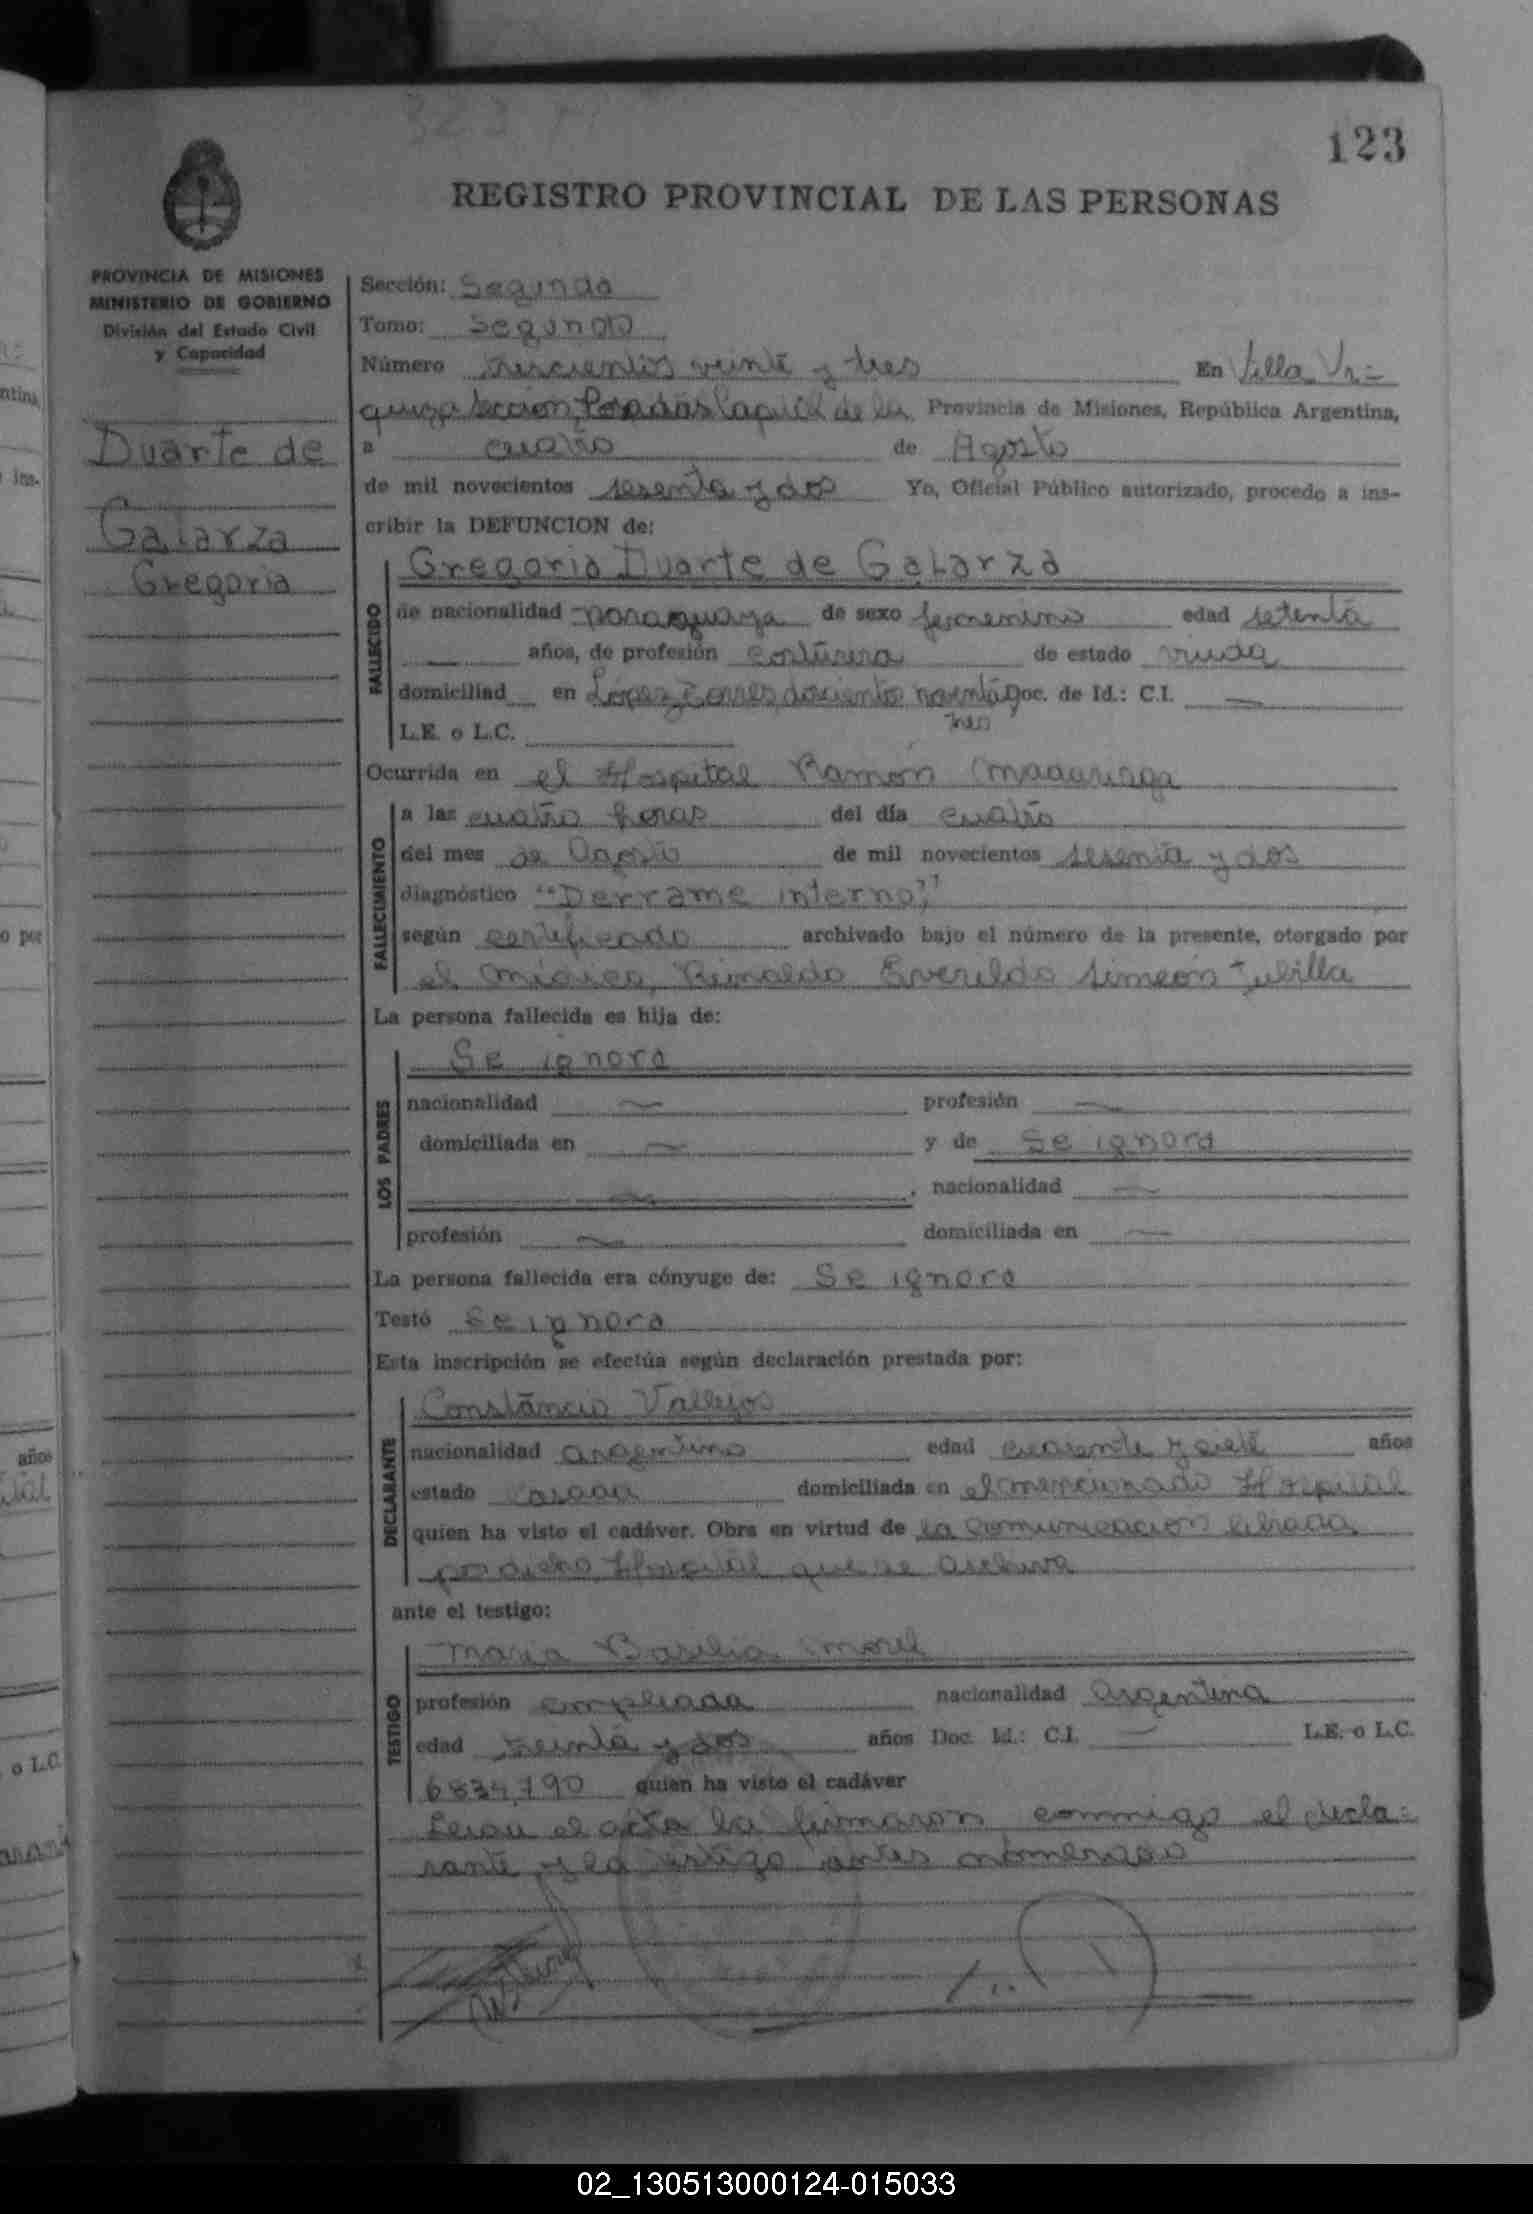 123
REGISTRO PROVINCIAL DE LAS PERSONAS
PROVINCIA DE MISIONES
MINISTERIO DE GOBIERNO
División del Estado Civil
y Capacidad
Duarte de
Galarza
Gregoria
Sección: Segunda
Tomo: Segundo
Número trescientos veinte y tres En Villa Ur=
quiza sección Posadas Capital de la Provincia de Misiones, República Argentina,
a cuatro de Agosto
de mil novecientos sesenta y dos Yo, Oficial Público autorizado, procedo a ins-
cribir la DEFUNCION de:
FALLECIDO
Gregoria Duarte de Galarza
de nacionalidad paraguaya de sexo femenino edad setenta
— años, de profesión costurera de estado viuda
domiciliad en López Torres, doscientos noventa y Doc. de Id.: C.I. —
tres
L.E. o L.C.
Ocurrida en el Hospital Ramón Madariaga
FALLECIMIENTO
a las cuatro horas del día cuatro
del mes de Agosto de mil novecientos sesenta y dos
diagnóstico "Derrame interno"
según certificado archivado bajo el número de la presente, otorgado por
el médico, Reinaldo Everildo Simeón
La persona fallecida es hija de:
LOS PADRES
Se ignora
nacionalidad — profesión —
domiciliada en — y de Se ignora
— , nacionalidad —
profesión — domiciliada en —
La persona fallecida era cónyuge de: Se ignora
Testó Se ignora
Esta inscripción se efectúa según declaración prestada por:
DECLARANTE
Constancio Vallejos
nacionalidad argentino edad cuarenta y siete años
estado casado domiciliada en el mencionado Hospital
quien ha visto el cadáver. Obra en virtud de la comunicación librada
por dicho Hospital que se archiva
ante el testigo:
TESTIGO
Maria Basilia Morel
profesión empleada nacionalidad argentina
edad treinta y dos años Doc. Id.: C.I. — L.E. o L.C.
6834.790 quien ha visto el cadáver
Leida el acta la firmaron conmigo el decla=
rante y la testigo antes nombrados
02_130513000124-015033